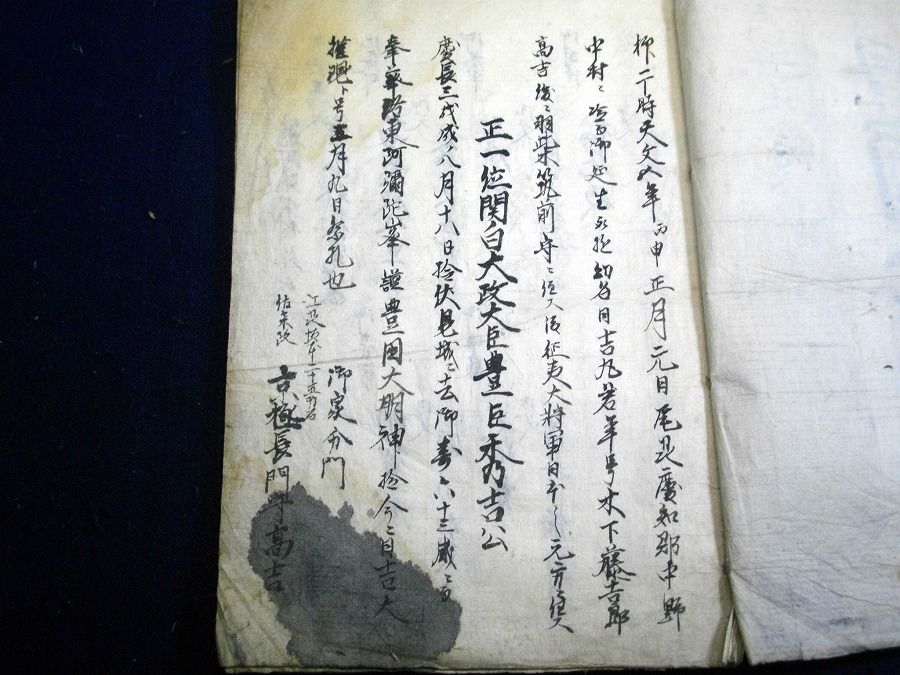 抑二時天文五年丙申正月元日尾州愛知郡中野
中村ニ御延生幼名日吉丸若年号木下藤吉郎
高吉後ニ羽柴筑前守ニ任又後征夷大将軍日本
正一位関白大政大臣豊臣秀吉公
慶長三戊戌八月十八日於伏見城ニ去御寿六十三歳ニ而
奉葬洛東阿彌陀峯謚豊国大明神於今ニ日吉大
権現ト号五月九日祭礼也
御家分門
佐々木
長門守高吉